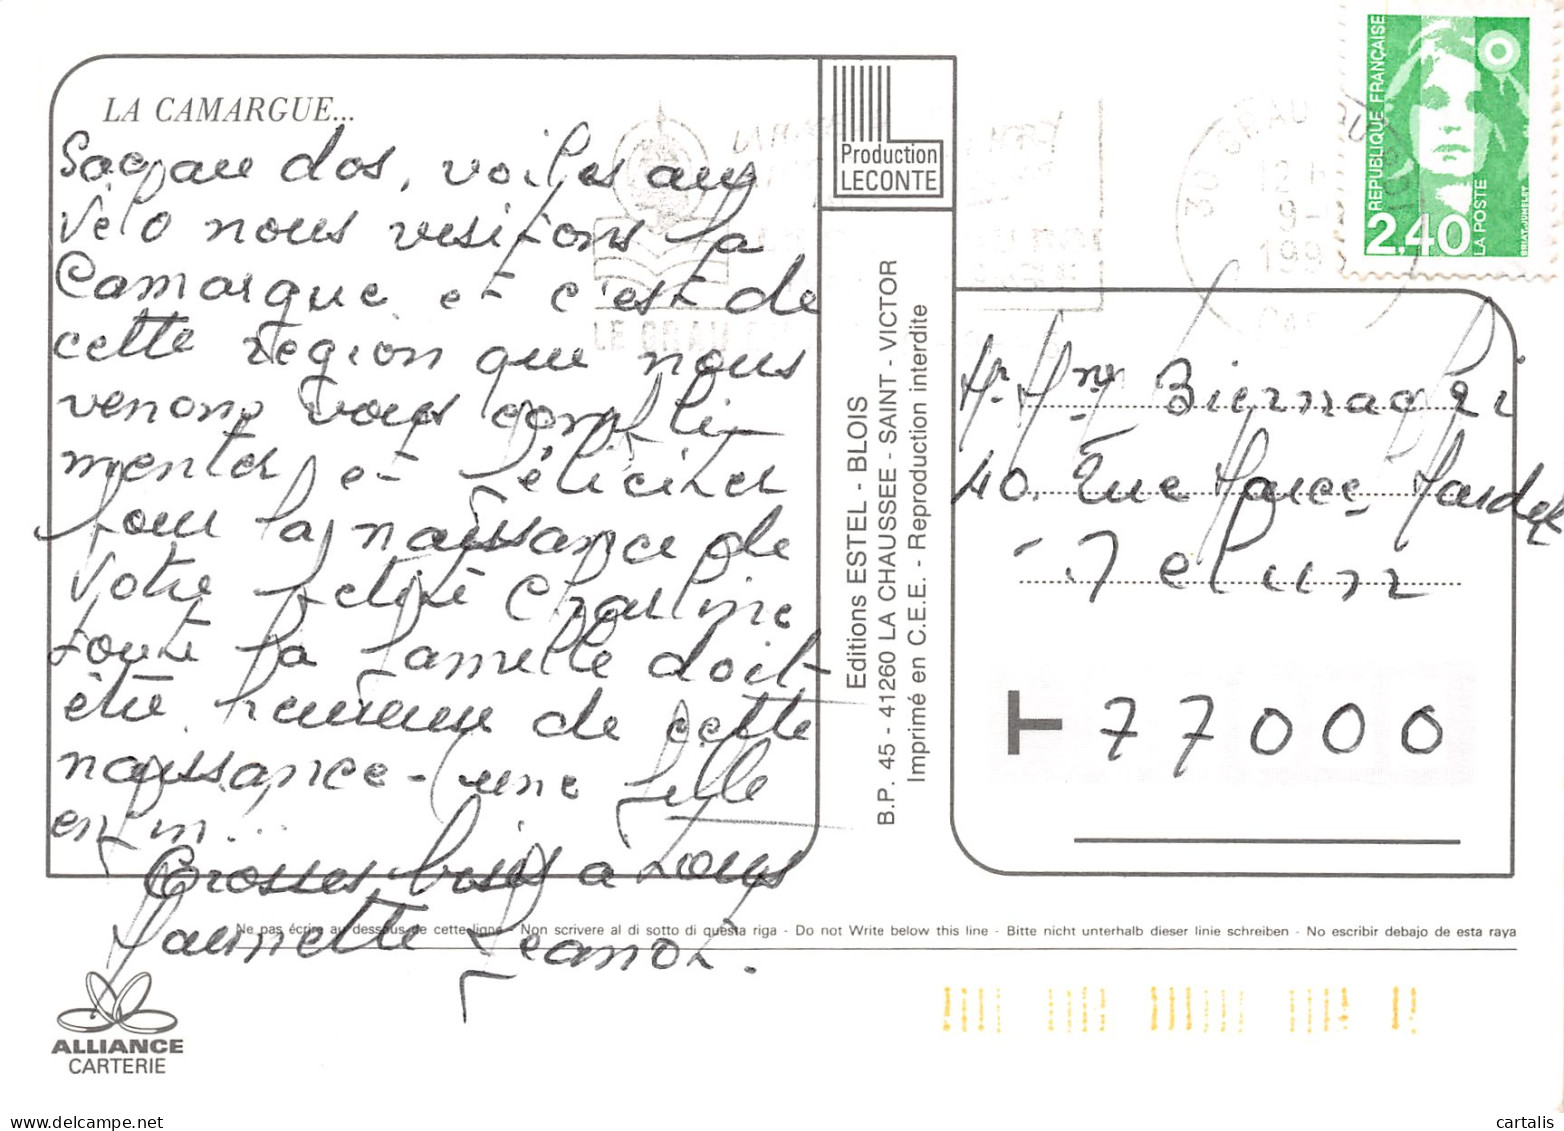 LA CAMARGUE...
Sac au dos, voiles aux
vélo nous visitons la
Camargue et c'est de
cette region que nous
venons vous compli-
menter et féliciter
pour la naissance de
votre petite Charline
toute la famille doit
être heureuse de cette
naissance - une fille
enfin...
Grosses bises à tous
Jeannette
Production
LECONTE
Editions ESTEL - BLOIS
B.P. 45 - 41260 LA CHAUSSEE - SAINT - VICTOR
Imprimé en C.E.E. - Reproduction interdite
REPUBLIQUE FRANÇAISE
2,40
LA POSTE
BRIAT-JUMELET
30
12 H
9-
199
LE GRAU
Mr Mme Biernacki
40, Rue
Melun
T 77000
Ne pas écrire au dessous de cette ligne - Non scrivere al di sotto di questa riga - Do not Write below this line - Bitte nicht unterhalb dieser linie schreiben - No escribir debajo de esta raya
ALLIANCE
CARTERIE
cartalis
www.delcampe.net